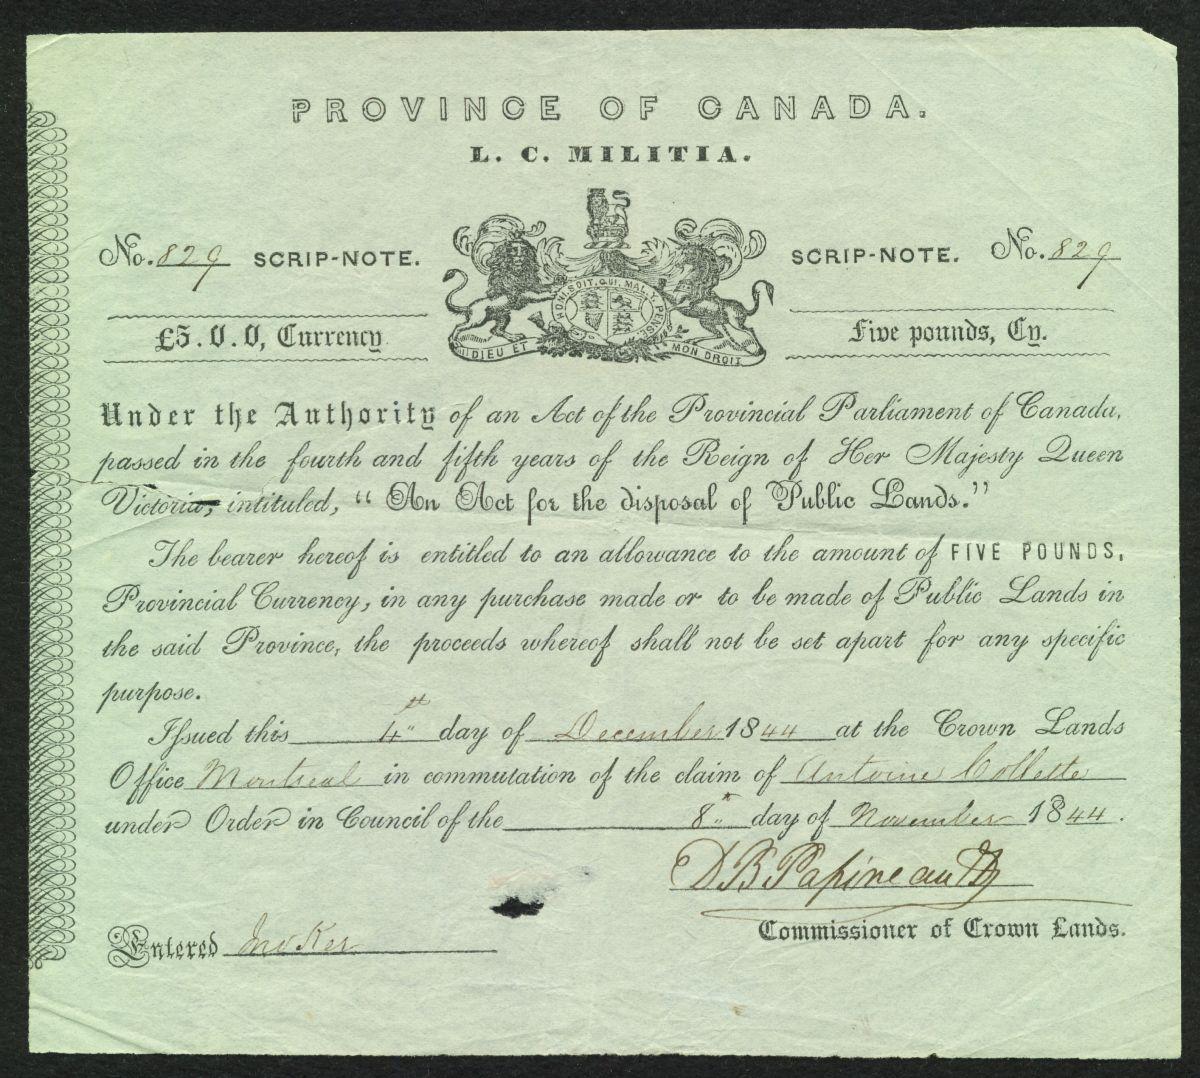 PROVINCE OF CANADA.
L. C. MILITIA.
No. 829 SCRIP-NOTE.
SCRIP-NOTE. No. 829
£5.0.0, Currency
Five pounds, Cy.
HONI.SOIT.QUI.MAL.Y.PENSE
DIEU ET MON DROIT
Under the Authority of an Act of the Provincial Parliament of Canada,
passed in the fourth and fifth years of the Reign of Her Majesty Queen
Victoria, intituled, "An Act for the disposal of Public Lands."
The bearer hereof is entitled to an allowance to the amount of FIVE POUNDS,
Provincial Currency, in any purchase made or to be made of Public Lands in
the said Province, the proceeds whereof shall not be set apart for any specific
purpose.
Issued this 4th day of December 1844 at the Crown Lands
Office Montreal in commutation of the claim of Antoine Collette
under Order in Council of the 8th day of November 1844.
D B Papineau
Commissioner of Crown Lands.
Entered Jno Ker